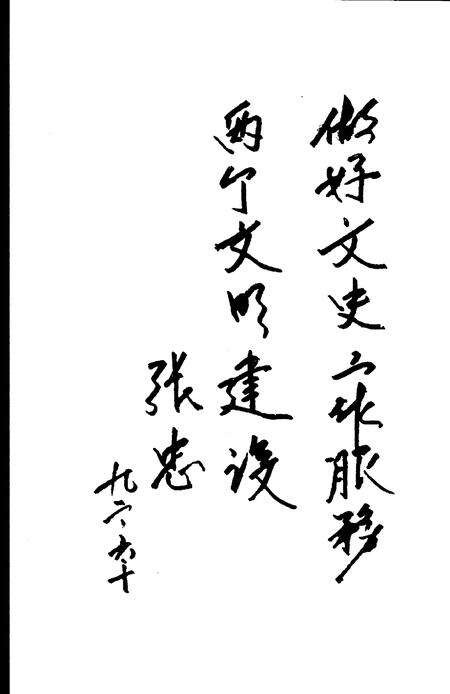 做好文史工作服务
两个文明建设
张忠
九二、六、十